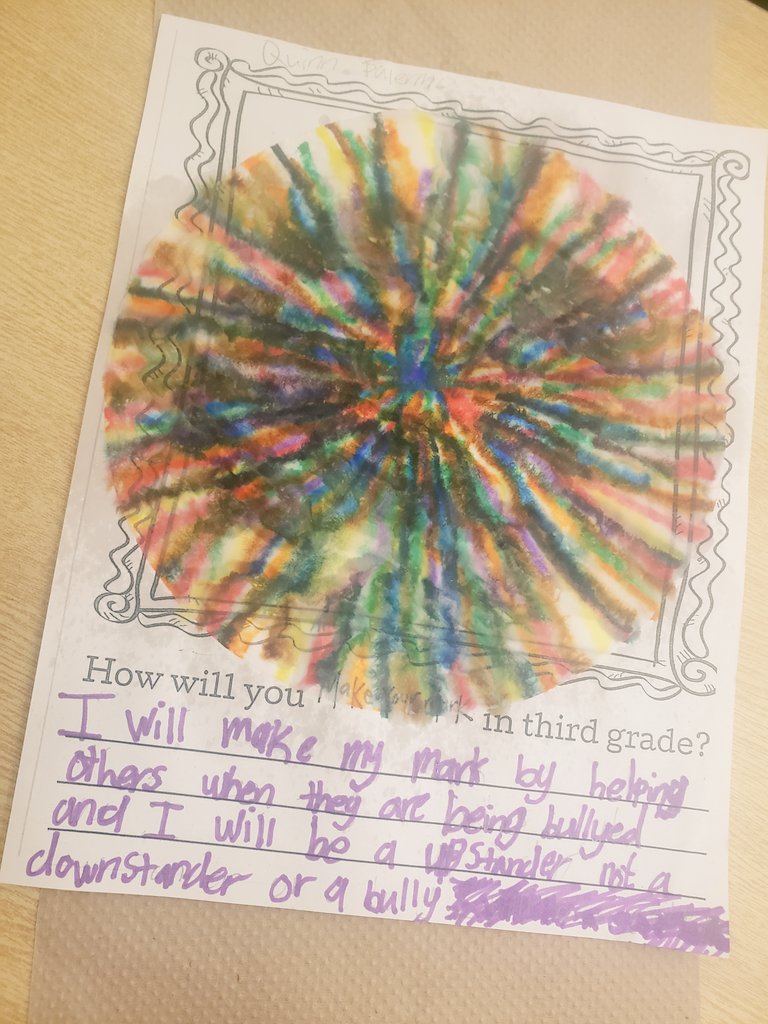 Quinn
How will you Make your mark in third grade?
I will make my mark by helping
others when they are being bullyed
and I will be a upstander not a
downstander or a bully